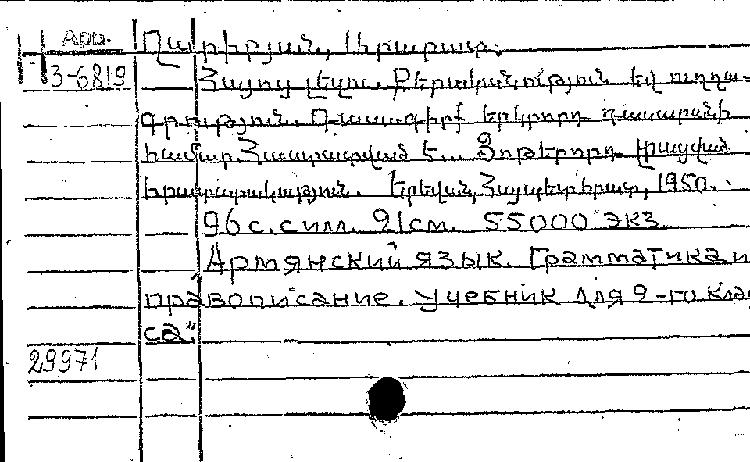 Арм. Ղարիբյան, Արարատ.
3-6819 Հայոց լեզու. Քերականություն եվ ուղղա-
գրություն. Դասագիրք երկրորդ դասարանի
համար. Հաստատված է... Յոթերորդ լրացված
հրատարակություն. Երեվան, Հայպետհրատ, 1950.
96 с. с илл. 21 см. 55000 экз.
Армянский язык. Грамматика и
правописание. Учебник для 2-го клас
са."
29971